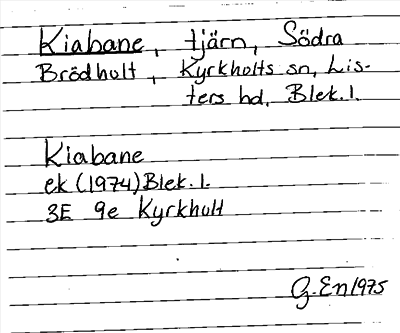 Kiabane, tjärn, Södra
Brödhult, Kyrkhults sn, Lis-
ters hd, Blek.l.
Kiabane
ek (1974) Blek.l.
3E 9e Kyrkhult
G.En 1975